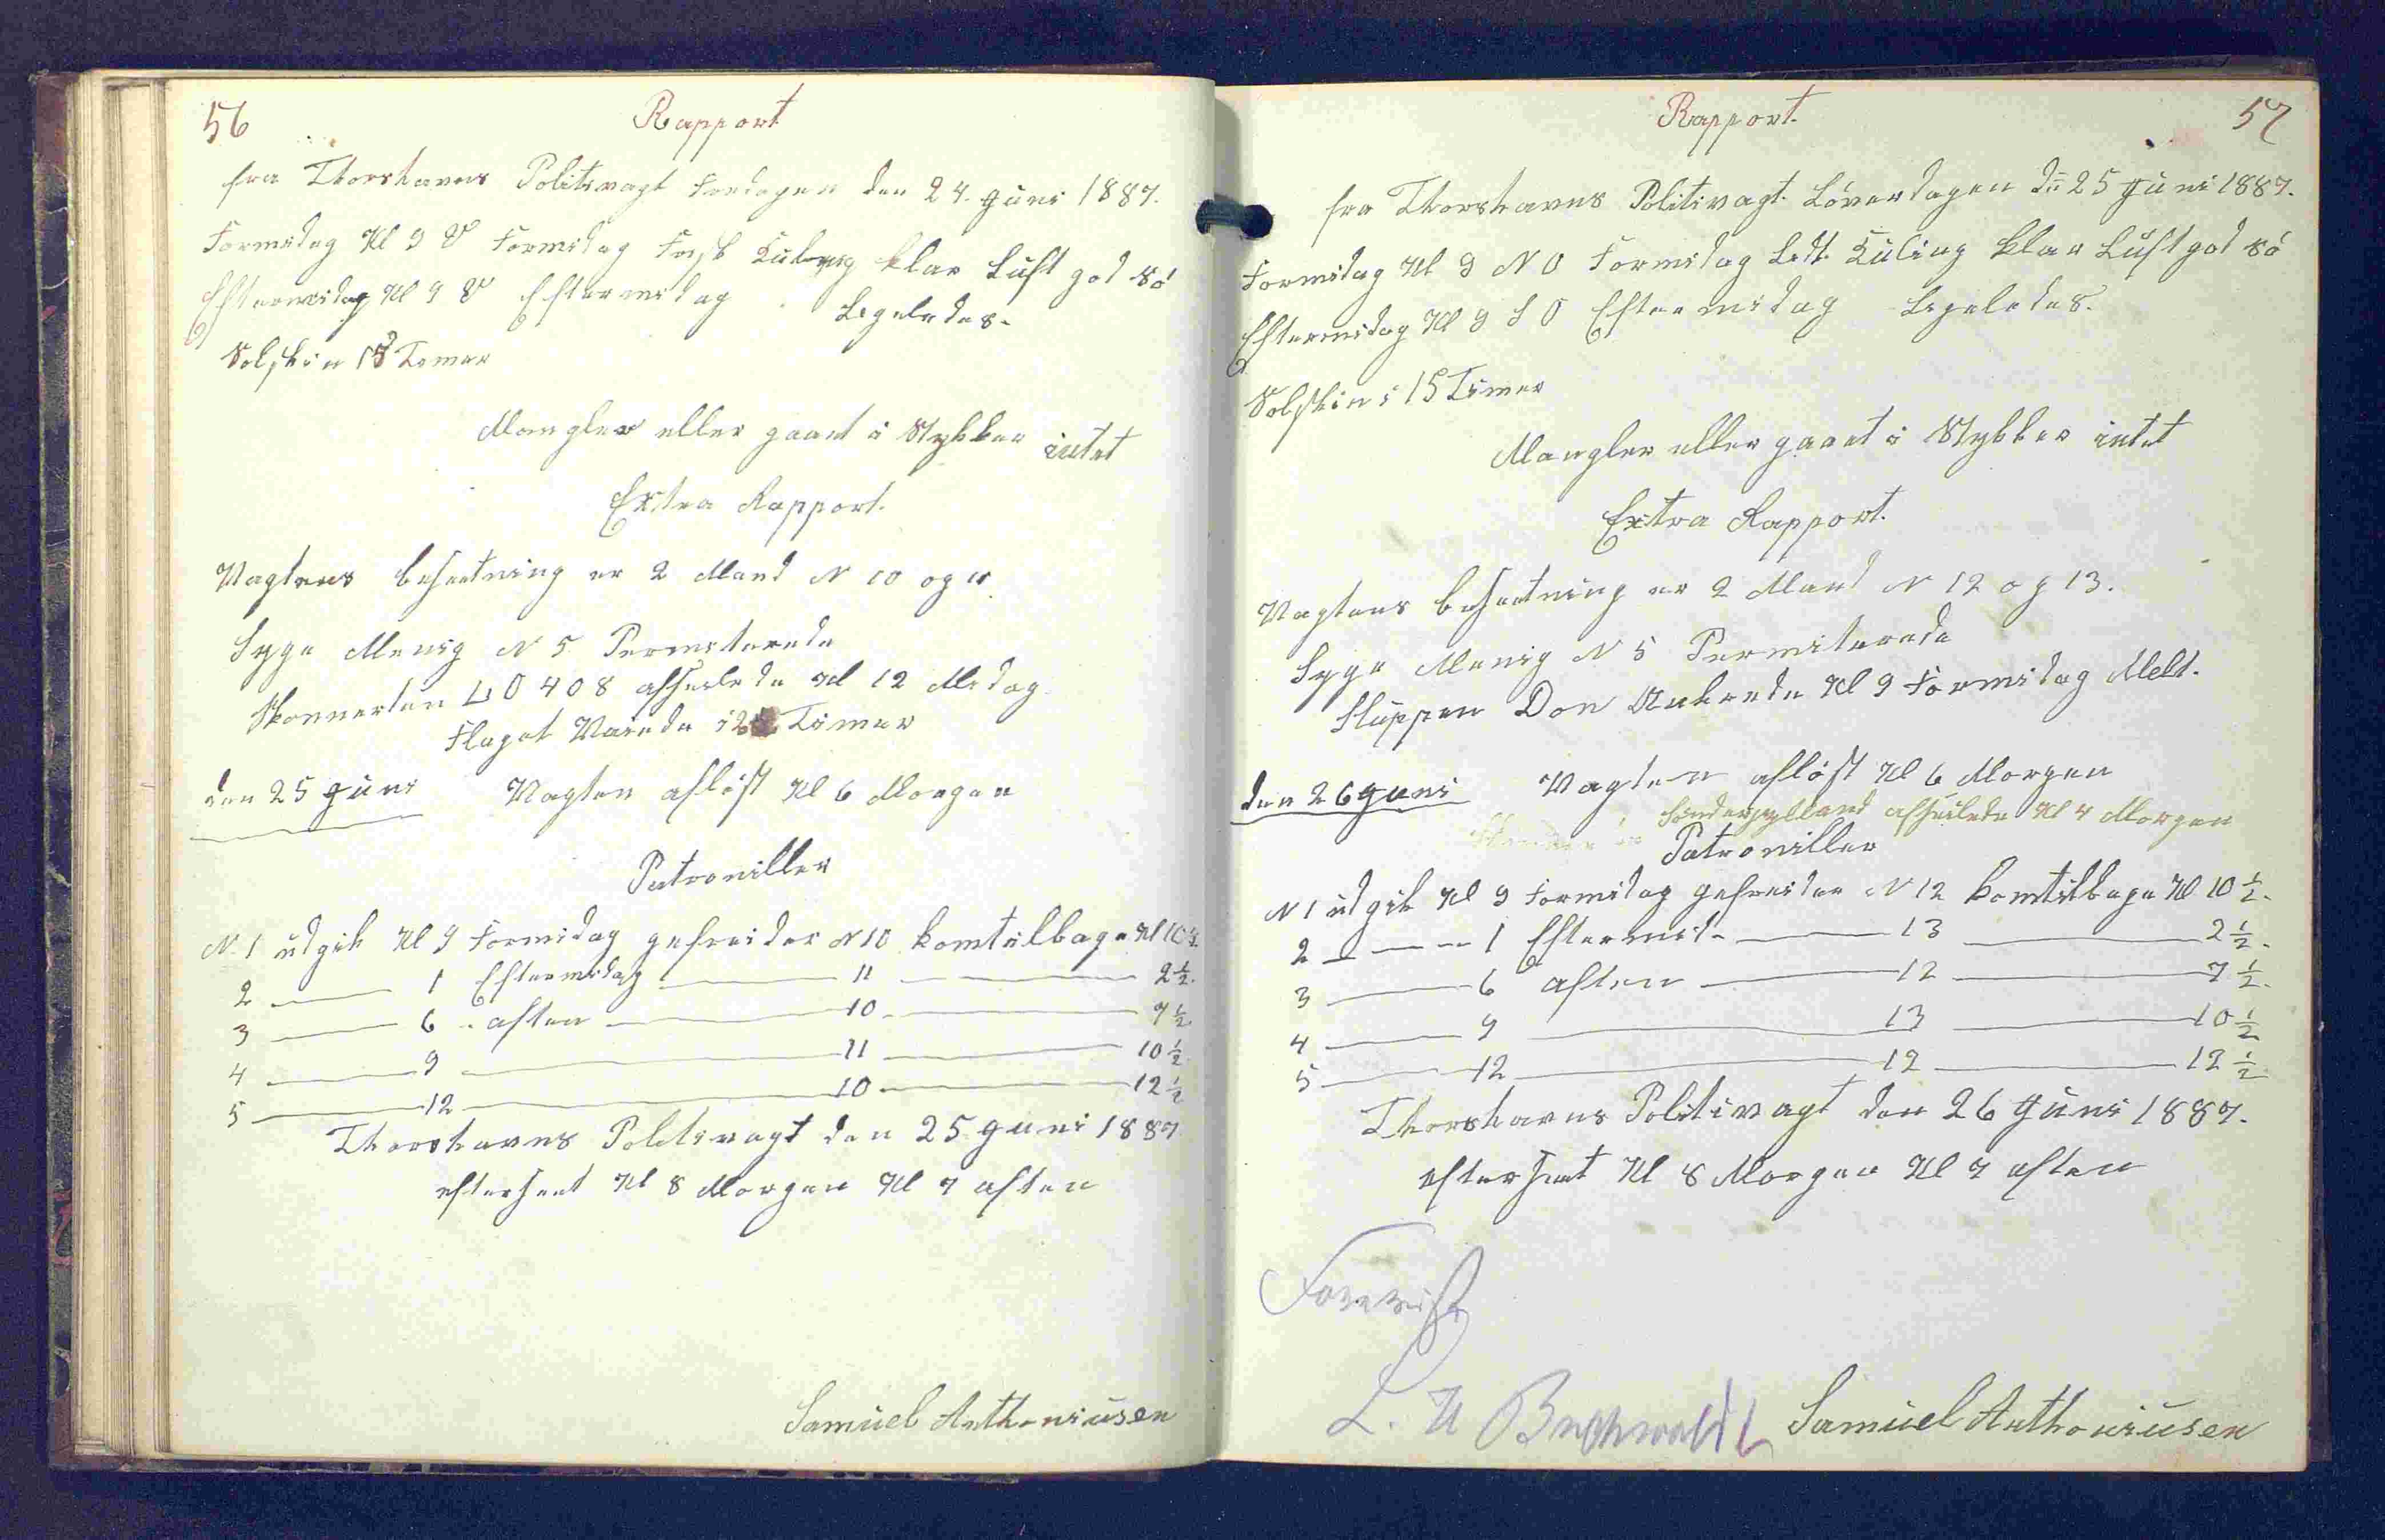 56
Rapport
fra Thorshavns Politivagt Fredagen den 24. Juni 1887.
Formidag Kl 9 V Formidag Frisk Kuling klar Luft god Sö
Eftermidag Kl 9 V Eftermidag Ligeledes.
Solskin 13 Timer
Mangler eller gaaet i Stykker intet
Extra Rapport.
Vagtens besætning er 2 Mand N 10 og 11.
Syge Menig N 5 Permiterede
Skonnerten LO 408 afseilede Kl 12 Midag
Flaget Vaiede i 2 Timer
den 25 Juni Vagten aflöst Kl 6 Morgen
Patroniller
N. 1 udgik Kl 9 Formidag gefreider N 10 komtilbage Kl 10½.
2 — 1 Eftermidag — 11 — 2½.
3 — 6 aften — 10 — 7½
4 — 9 — 11 — 10½
5 — 12 — 10 — 12½
Thorshavns Politivagt den 25 Juni 1887
efterseet Kl 8 Morgen Kl 7 aften
Samuel Anthoniusen
57
Rapport.
fra Thorshavns Politivagt. Löverdagen dn 25 Juni 1887.
Formidag Kl 9 N O Formidag Ledt. Kuling klar Luft god Sö
Eftermidag Kl 9 S O Eftermidag Ligeledes.
Solskin i 15 Timer
Mangler eller gaaet i Stykker intet
Extra Rapport.
Vagtens besætning er 2 Mand N 12 og 13.
Syge Menig N 5 Permiterede
Sluppen Don Ankrede Kl 9 Formidag Meldt.
den 26 Juni Vagten aflöst Kl 6 Morgen
Sönderjylland afseilede Kl 4 Morgen
Patroniller
N 1 udgik Kl 9 Formidag gefreider N 12 komtilbage Kl 10½.
2 — 1 Eftermid. — 13 — 2½.
3 — 6 aften — 12 — 7½.
4 — 9 — 13 — 10½
5 — 12 — 12 — 12½
Thorshavns Politivagt den 26 Juni 1887.
efterseet Kl 8 Morgen Kl 7 aften
Forevist
L. U Buchwaldt
Samuel Anthoniusen